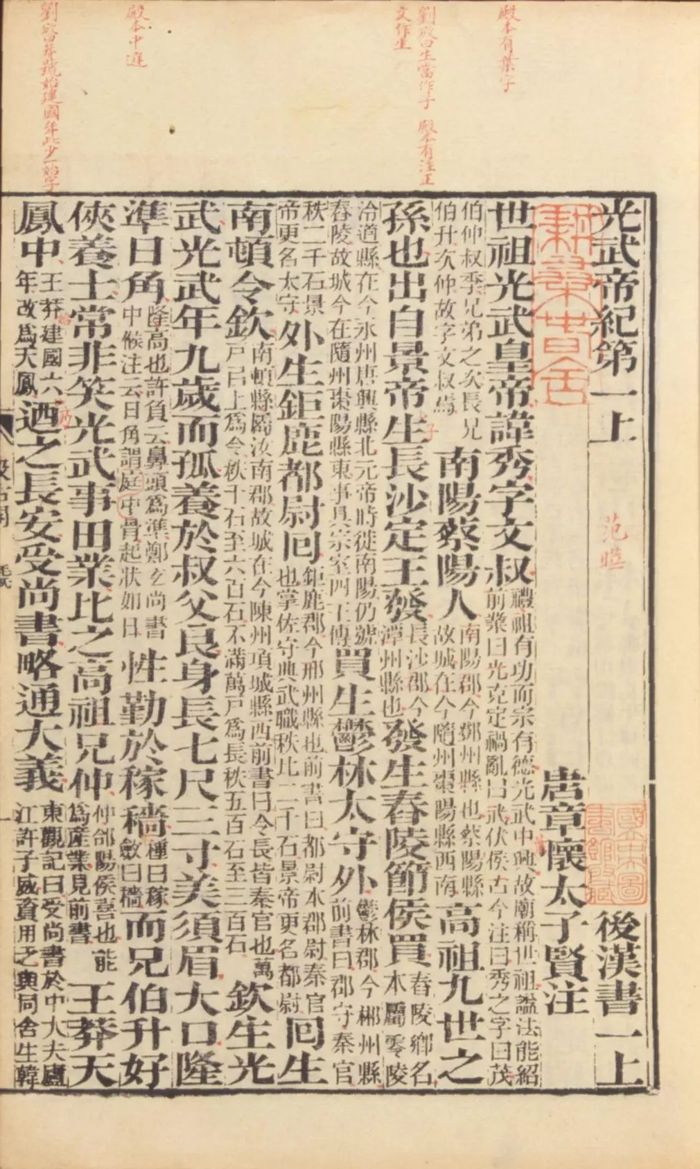 殿本有葉字
劉攽曰生當作子 殿本有注王
文作生
光武帝紀第一上 後漢書一上
范曄
唐章懷太子賢注
世祖光武皇帝諱秀字文叔 禮祖有功而宗有德光武中興故廟稱世祖謚法能紹前業曰光克定禍亂曰武伏侯古今注曰秀之字曰茂
伯仲叔季兄弟之次長兄伯升次仲故字文叔焉 南陽蔡陽人 南陽郡今鄧州縣也蔡陽縣故城在今隨州棗陽縣西南 高祖九世之
孫也出自景帝生長沙定王發 長沙郡今潭州縣也 發生舂陵節侯買 舂陵鄉名本屬零陵
泠道縣在今永州唐興縣北元帝時徙南陽仍號舂陵故城今在隨州棗陽縣東事具宗室四王傳 買生鬱林太守外 鬱林郡今郴州縣前書曰郡守秦官
秩二千石景帝更名太守 外生鉅鹿都尉回 鉅鹿郡今邢州縣也前書曰都尉本郡尉秦官也掌佐守典武職秩比二千石景帝更名都尉 回生
南頓令欽 南頓縣屬汝南郡故城在今陳州項城縣西前書曰令長皆秦官也萬戶已上爲令秩千石至六百石不滿萬戶爲長秩五百石至三百石 欽生光
武光武年九歲而孤養於叔父良身長七尺三寸美須眉大口隆
準日角 隆高也許負云鼻頭爲準鄭玄尚書中候注云日角謂庭中骨起狀如日 性勤於稼穡 種曰稼斂曰穡 而兄伯升好
俠養士常非笑光武事田業比之高祖兄仲 仲郃陽侯喜也能爲產業見前書 王莽天
鳳中 王莽建國六年改爲天鳳 迺之長安受尚書略通大義 東觀記曰受尚書於中大夫廬江許子威資用乏與同舍生韓